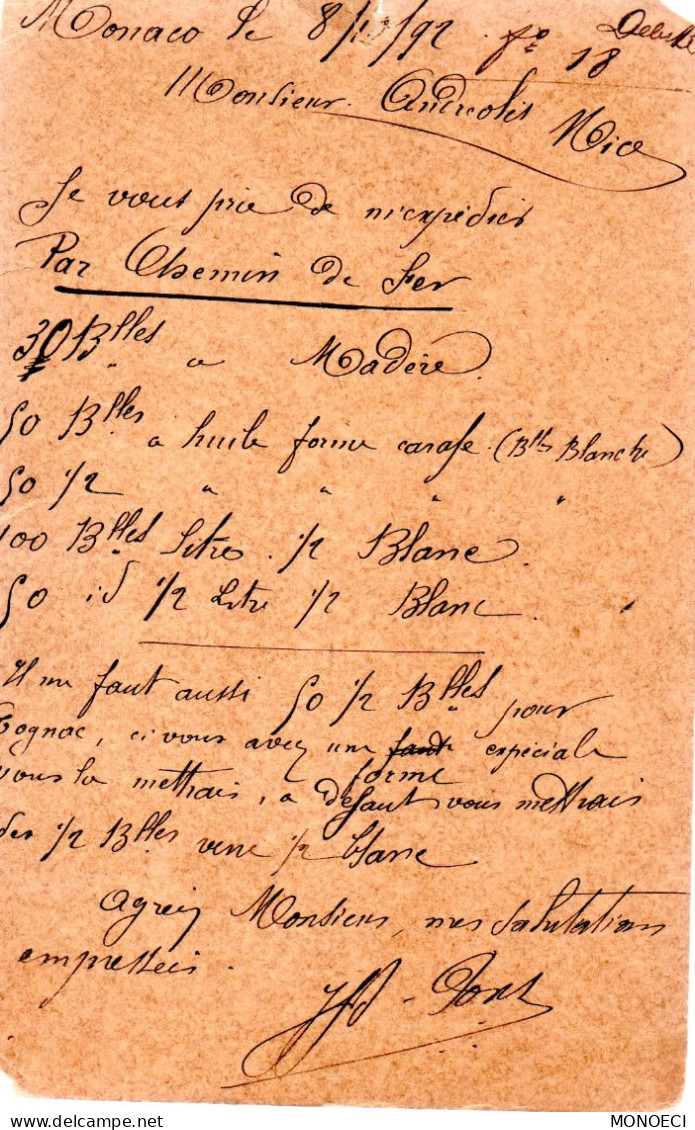 Monaco le 8/ /92 fo 18
Monsieur Andreolis Nice
Je vous prie de m'expédier
Par Chemin de Fer
30 Blles a Madère.
50 Blles a huile forme carafe. (Blle Blanche)
50 1/2 " " " "
100 Blles Litres. 1/2 Blanc.
50 id 1/2 Litre 1/2 Blanc.
Il me faut aussi 50 1/2 Blles pour
Cognac, ci vous avez une forme expéciale
vous la mettrais, a défaut vous mettrais
des 1/2 Blles verre 1/2 blanc
Agréez Monsieur, mes salutations
empressées.
Pons
MONOECI